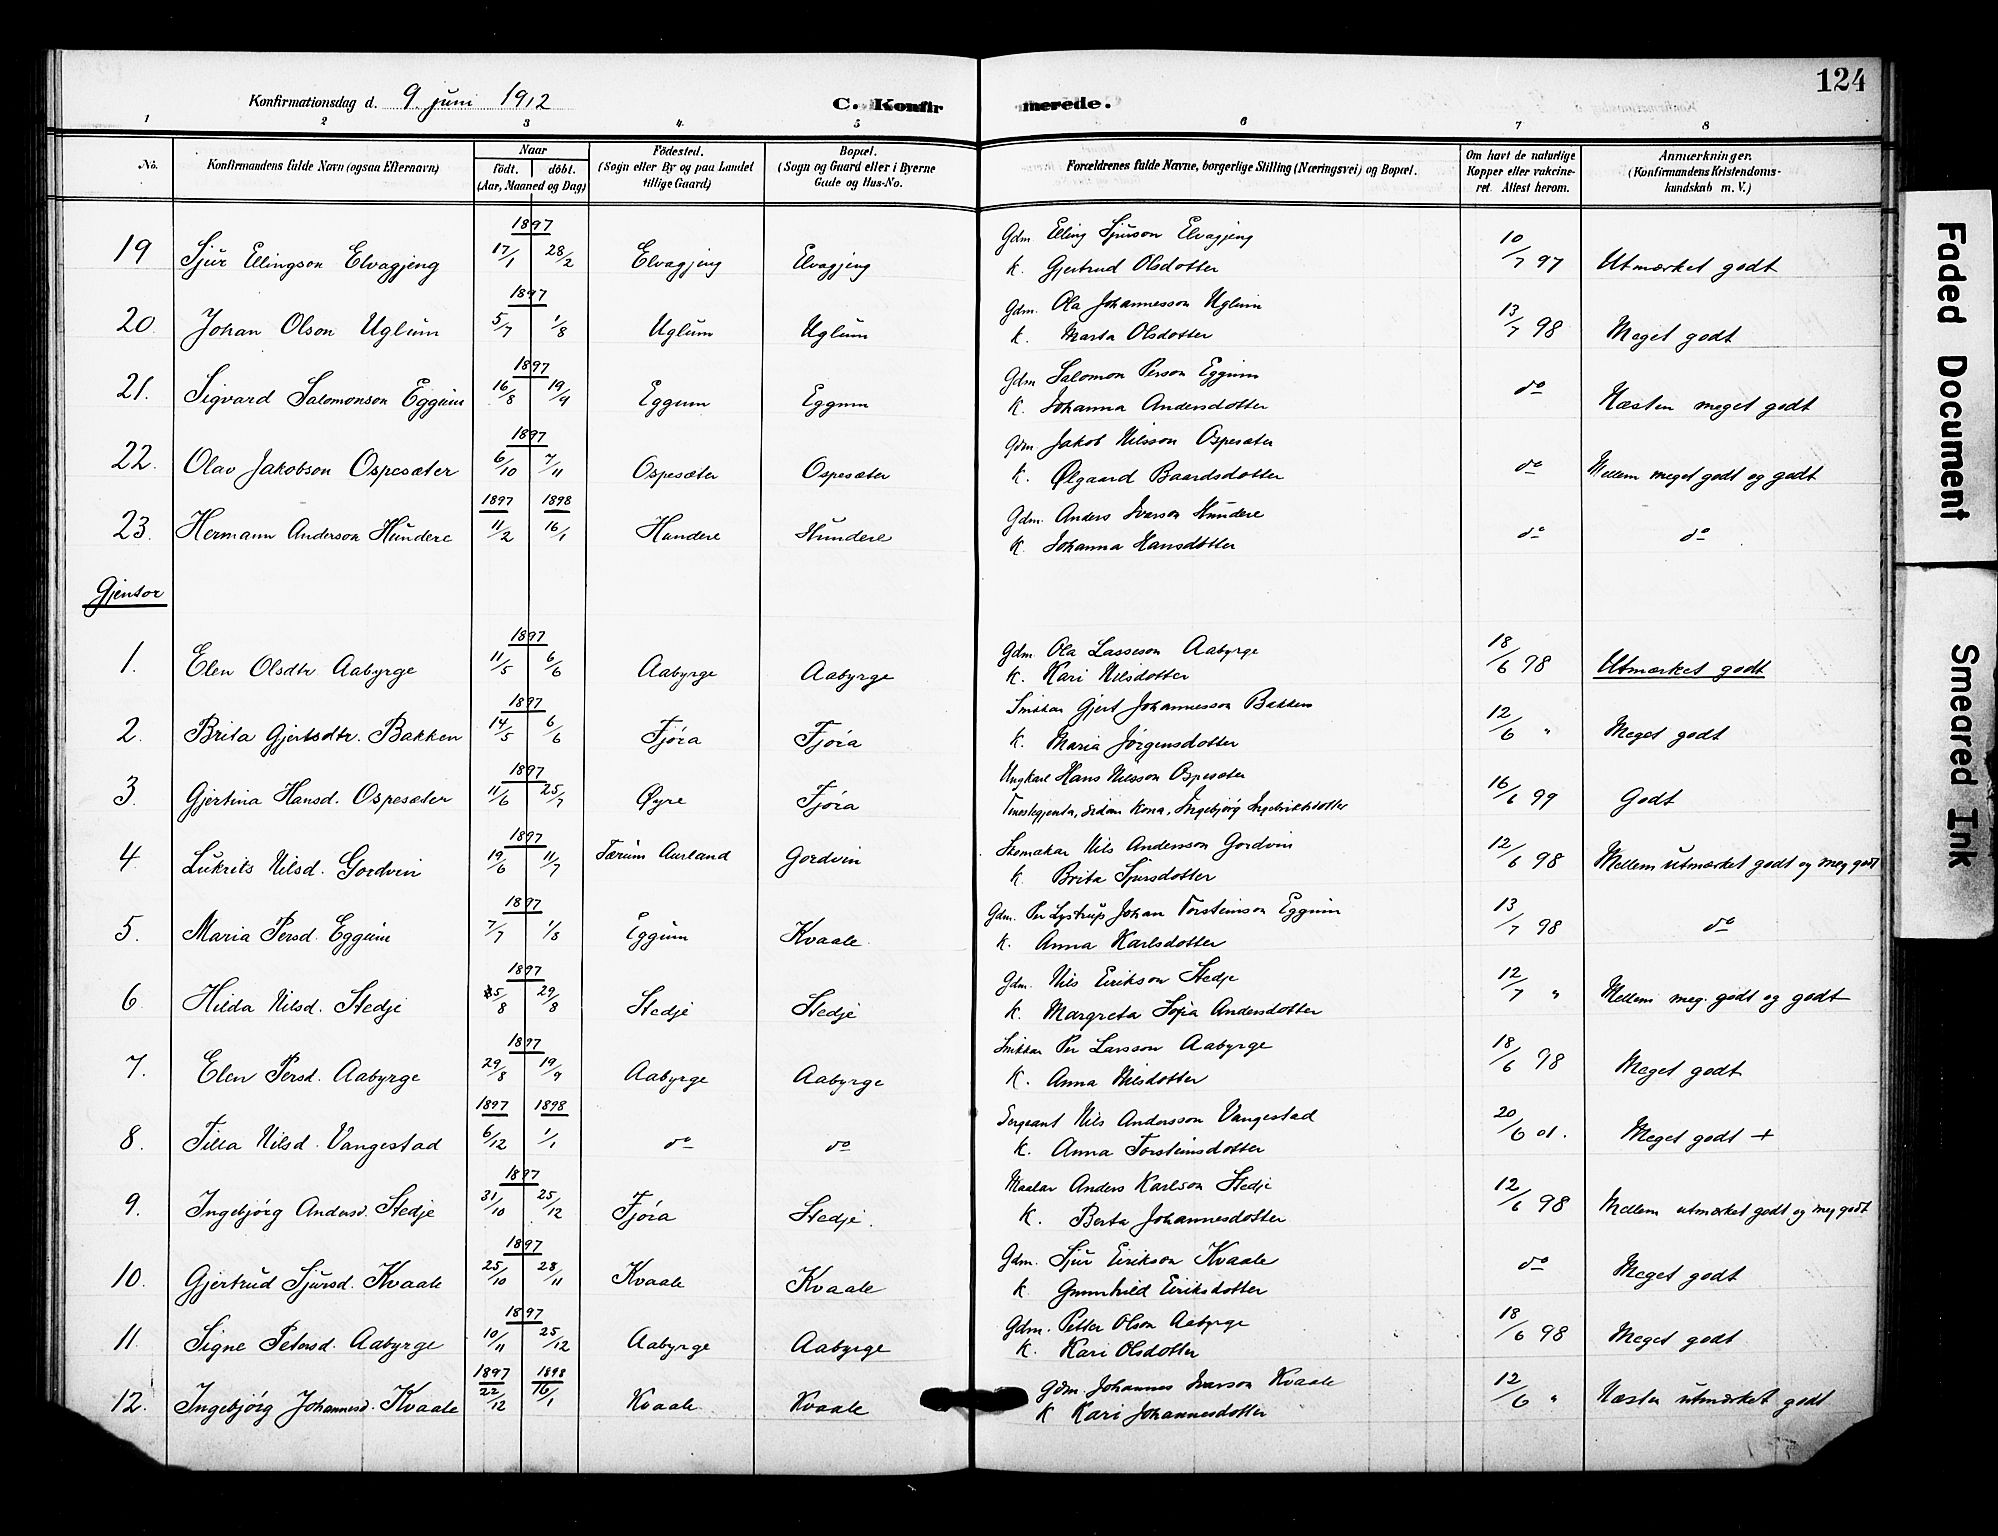 124
Konfirmationsdag d. 9. juni 1912 C. Konfirmerede.
1 2 3 4. 5 6 7 8
No. Konfirmandens fulde Navn (ogsaa Efternavn) Naar födt. döbt. (Aar, Maaned og Dag) Födested. (Sogn eller By og paa Landet tillige Gaard) Bopæl. (Sogn og Gaard eller i Byerne Gade og Hus-No. Forældrenes fulde Navne, borgerlige Stilling (Næringsvei) og Bopæl. Om havt de naturlige Kopper eller vakcineret. Attest herom. Anmærkninger. (Konfirmandens Kristendomskundskab m. V.)
1897
19 Sjur Ellingson Elvagjeng 17/1 28/2 Elvagjeng Elvagjeng Gdm Elling Sjurson Elvagjeng 10/7 97 Utmærket godt
K. Gjertrud Olsdotter
1897
20. Johan Olson Uglum 5/7 1/8 Uglum Uglum Gdm. Ola Johannesson Uglum 13/7 98 Meget godt
K. Marta Olsdotter
1897
21. Sigvard Salomonson Eggum 16/8 19/9 Eggum Eggum Gdm Salomon Person Eggum do Næsten meget godt
K. Johanna Andersdotter
1897
22. Olav Jakobson Ospesæter 6/10 7/11 Ospesæter Ospesæter Gdm. Jakob Nilsson Ospesæter do Mellem meget godt og godt
K. Ølgaard Baardsdotter
1897 1898
23. Hermann Anderson Hundere 11/2 16/1 Hundere Hundere Gdm. Anders Ivarson Hundere do do
K. Johanna Hansdotter
Gjentor
1897
1. Elen Olsdtr Aabyrge 11/5 6/6 Aabyrge Aabyrge Gdm Ola Lasseson Aabyrge 18/6 98 Utmærket godt
K. Kari Nilsdotter
1897
2. Brita Gjertsdtr. Bakken 14/5 6/6 Fjøra Fjøra Snikkar Gjert Johannesson Bakken 12/6 " Meget godt
K. Maria Jørgensdotter
1897
3. Gjertina Hansd. Ospesæter 11/6 25/7 Øyre Fjøra Ungkarl Hans Nilsson Ospesæter 16/6 99 Godt
Tenestegjenta, sidan kona, Ingebjørg Ingebriktsdotter
1897
4 Lukrets Nilsd. Gordvin 19/6 11/7 Færum Aurland Gordvin Skomakar Nils Andersson Gordvin 12/6 98 Mellem utmærket godt og meg godt
K. Brita Sjursdotter
1897
5. Maria Persd. Eggum 7/7 1/8 Eggum Kvaale. Gdm. Per Lystrup Johan Torsteinson Eggum 13/7 98 do
K. Anna Karlsdotter
1897
6. Hilda Nilsd. Stedje 5/8 29/8 Stedje Stedje Gdm. Nils Eirikson Stedje 12/7 " Mellem meg. godt og godt
K. Margreta Sofia Andersdotter
1897
7. Elen Persd. Aabyrge 29/8 19/9 Aabyrge Aabyrge Snikkar Per Larsson Aabyrge 18/6 98 Meget godt
K. Anna Nilsdotter
1897 1898
8. Tilla Nilsd. Vangestad 6/12 1/1 do do Sergeant Nils Andersson Vangestad 20/6 01. Meget godt +
K. Anna Torsteinsdotter
1897
9. Ingebjørg Andersd. Stedje 31/10 25/12 Fjøra Stedje. Maalar Anders Karlson Stedje 12/6 98 Mellem utmærket godt og meg godt
K. Berta Johannesdotter
1897
10. Gjertrud Sjursd. Kvaale 25/10 28/11 Kvaale Kvaale Gdm. Sjur Eirikson Kvaale do Meget godt
K. Gunnhild Eiriksdotter
1897
11. Signe Petersd. Aabyrge 10/11 25/12 Aabyrge Aabyrge Gdm. Petter Olson Aabyrge 18/6 98 Meget godt
K. Kari Olsdotter
1897 1898
12. Ingebjørg Johannesd. Kvaale 22/12 16/1 Kvaale. Kvaale Gdm. Johannes Ivarson Kvaale 12/6 " Næsten utmærket godt
K Kari Johannesdotter
Faded Document
Smeared Ink